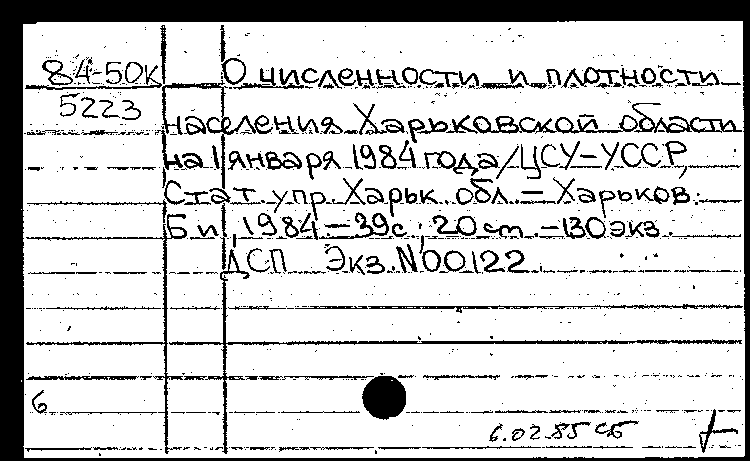 84-50к О численности и плотности
5223
населения Харьковской области
на 1 января 1984 года/ЦСУ-УССР,
Стат. упр. Харьк. обл. – Харьков:
Б. и., 1984 – 39 с.; 20 см. – 130 экз.
ДСП Экз. N00122
6
6.02.85 СБ